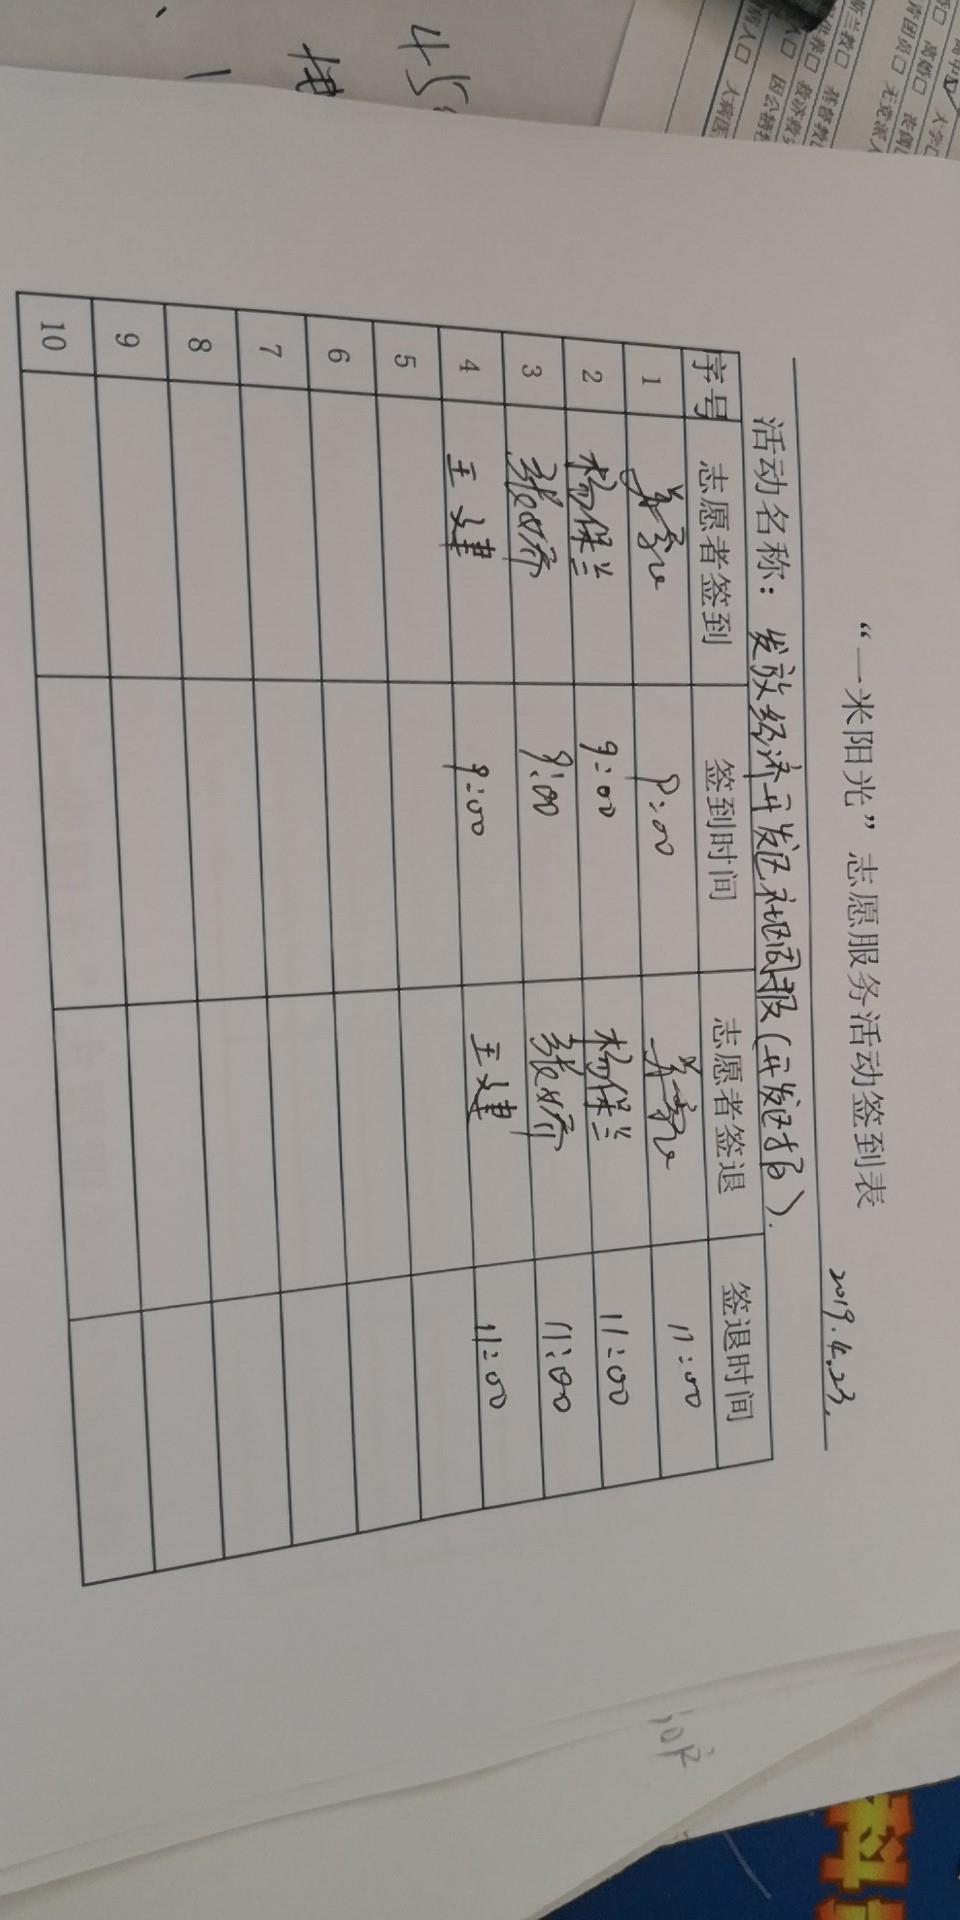 “一米阳光”志愿服务活动签到表
2019.4.23.
活动名称：发放经济开发区社区周报(开发区报).
序号 志愿者签到 签到时间 志愿者签退 签退时间
1 9:00 11:00
2 杨保兰 9:00 杨保兰 11:00
3 张娇 9:00 张娇 11:00
4 王建 9:00 王建 11:00
5
6
7
8
9
10